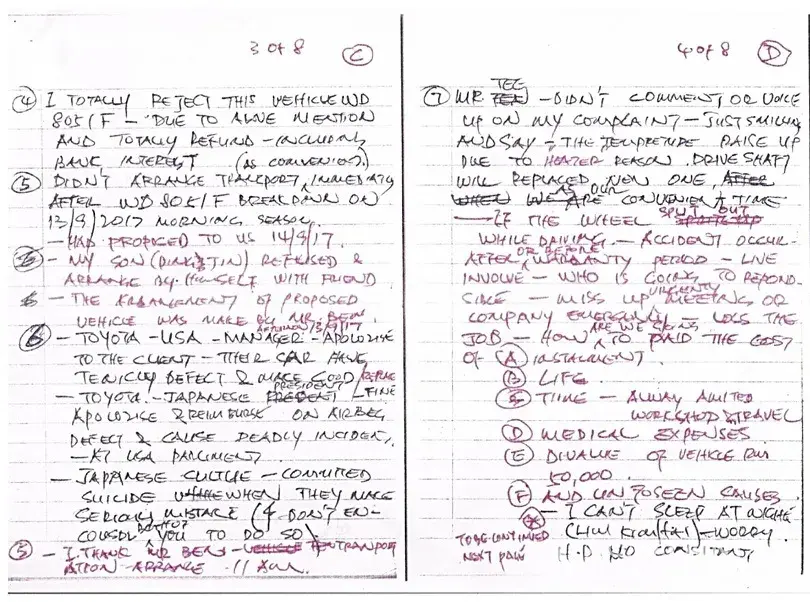 3 of 8 C
④ I TOTALLY REJECT THIS VEHICLE WD
805/F - DUE TO ABOVE MENTION
AND TOTALLY REFUND - INCLUDING
BANK INTEREST (AS CONVENIOS)
⑤ DIDN'T ARRANGE TRANSPORT, IMMEDIATLY
AFTER WD 805/F BREAKDOWN ON
13/9/2017 MORNING SEASON
- HAD PROPOSED TO US 14/9/17.
- MY SON REFUSED &
ARRANGE BY HIMSELF WITH FRIEND
- THE ARRANGEMENT OF PROPOSED
VEHICLE WAS MAKE BY MR. BEN
13/9/17
⑥ - TOYOTA - USA - MANAGER - APOLOGISE
TO THE CLIENT - THEIR CAR HAVE
DEFECT & MAKE GOOD
PRESIDENT
- TOYOTA - JAPANESE - FINE
APOLOGISE & REIMBURSE ON AIRBEG
DEFECT & CAUSE DEADLY INCIDENT,
- AT USA PARLIMENT.
- JAPANESE CULTUE - COMMITED
SUICIDE WHEN THEY MAKE
SERIOUS MISTAKE (I DON'T EN-
YOU TO DO SO
⑤ - I THANK MR BEN - TRANSPORT
ATION - ARRANGE
4 of 8 D
TEE
⑦ MR. - DIDN'T COMMENT, OR VOICE
UP ON MY COMPLAINT - JUST SMILING
AND SAY - THE TEMPRETURE RAISE UP
DUE TO HEATER REASON. DRIVE SHAFT
WILL REPLACED NEW ONE, AFTER
AS OUR
CONVENIENT TIME
SPLIT OUT
- IF THE WHEEL
WHILE DRIVING. - ACCIDENT OCCUR-
OR BEFORE
AFTER WARRANTY PERIOD - LIVE
INVOLVE - WHO IS GOING TO RESPOND-
URGENTLY
SIBLE - MISS UP MEETING OR
COMPANY - LOSS THE
ARE WE GOING
JOB - HOW TO PAID THE COST
OF Ⓐ INSTALMENT.
Ⓑ LIFE.
TIME - ALWAY
WORKSHOP & TRAVEL
Ⓓ MEDICAL EXPENSES
Ⓔ DIVALUE OF VEHICLE RM
50,000.
Ⓕ AND UNFOSEEN CAUSES
- I CAN'T SLEEP AT NIGHT
- WORRY.
TO BE CONTINUED
NEXT PAGE